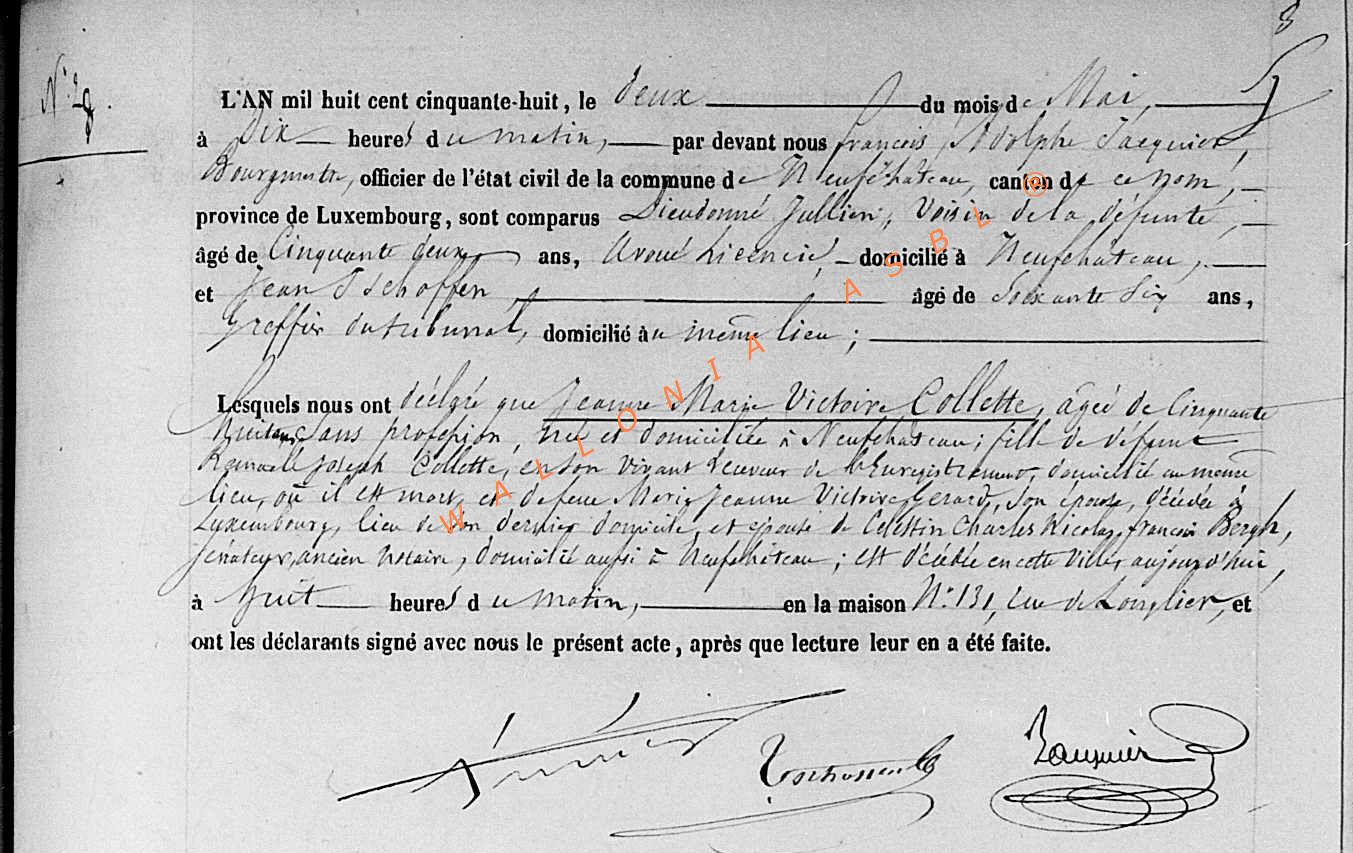 8
N° 28.
L'AN mil huit cent cinquante-huit, le deux du mois de Mai,
à Dix heures du matin, par devant nous françois Adolphe Jacquier,
Bourgmestre, officier de l'état civil de la commune de Neufchâteau, canton de ce nom,
province de Luxembourg, sont comparus Dieudonné Jullien, Voisin de la défunte,
âgé de Cinquante deux ans, Avoué Licencié, domicilié à Neufchâteau,
et Jean Tschoffen âgé de Soixante Six ans,
greffier du tribunal, domicilié au même lieu;
Lesquels nous ont déclaré que Jeanne Marie Victoire Collette, âgée de Cinquante
huit ans, Sans profession, née et domiciliée à Neufchâteau; fille de défunt
Joseph Collette, en son vivant Receveur de l'Enregistrement, domicilié au même
lieu, où il est mort, et de feue Marie Jeanne Victoire Gerard, son épouse, décédée à
Luxembourg, lieu de son dernier domicile, et épouse de Celestin Charles Nicolas françois Bergh,
Sénateur, ancien Notaire, domicilié aussi à Neufchâteau; est décédée en cette Ville, aujourd'hui,
à huit heures du matin, en la maison N° 131, rue de Longlier, et
ont les déclarants signé avec nous le présent acte, après que lecture leur en a été faite.
Tschoffen Jacquier
WALLONIA ASBL ®